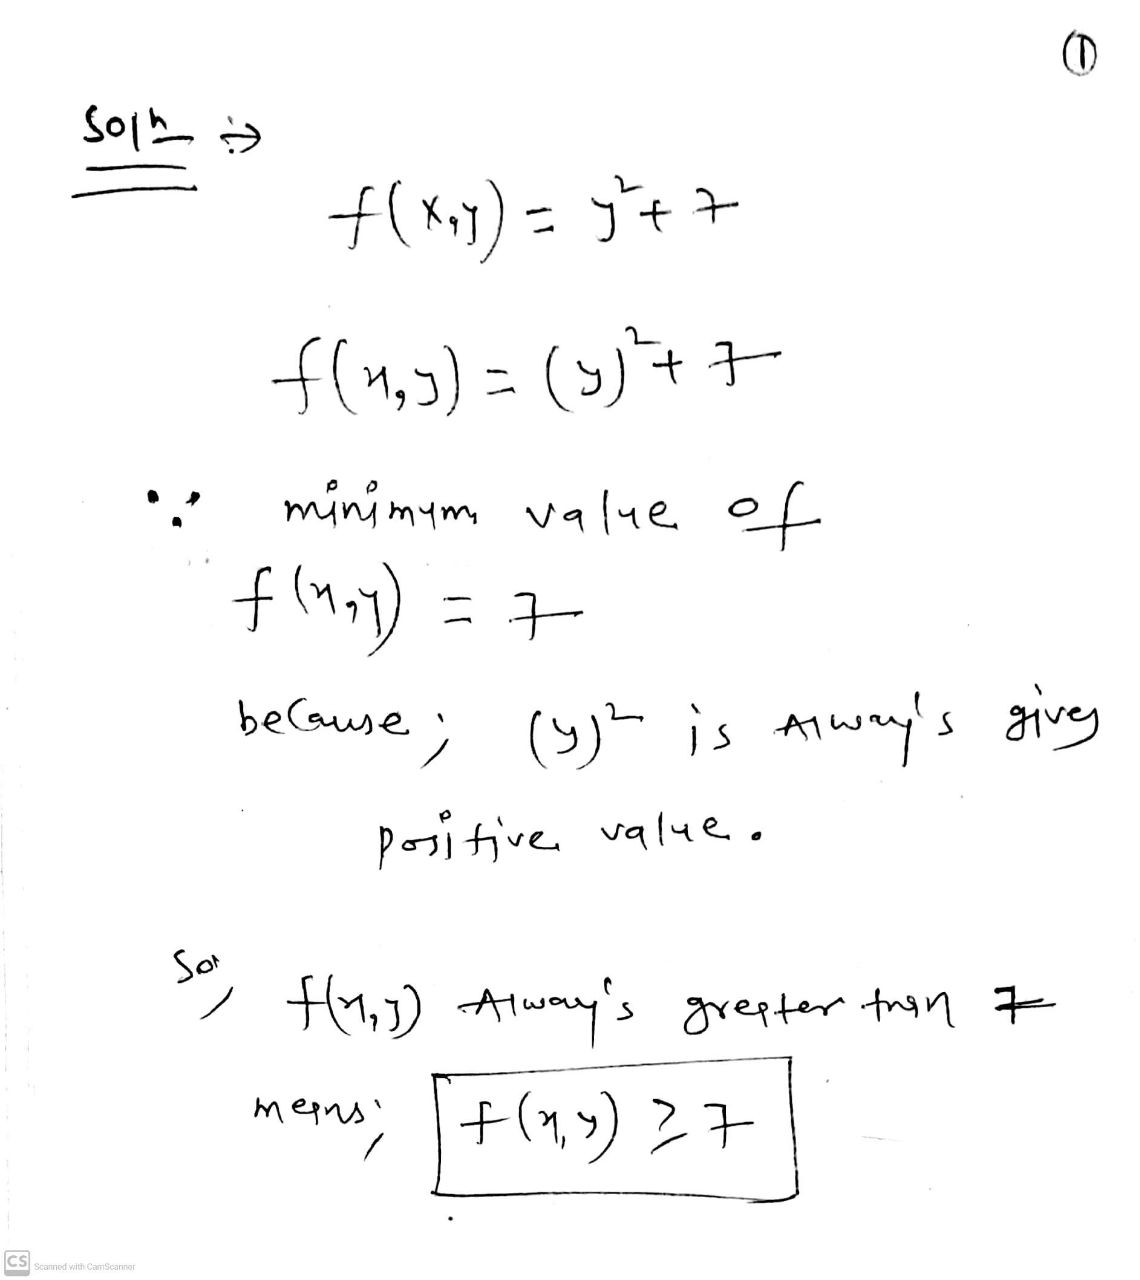 ①
Solⁿ ÷>
f(x,y) = y² + 7
f(x,y) = (y)² + 7
∵ minimum value of
f(x,y) = 7
because; (y)² is Alway's gives
positive value.
So, f(x,y) Alway's greater than 7
means; f(x,y) ≥ 7
CS Scanned with CamScanner